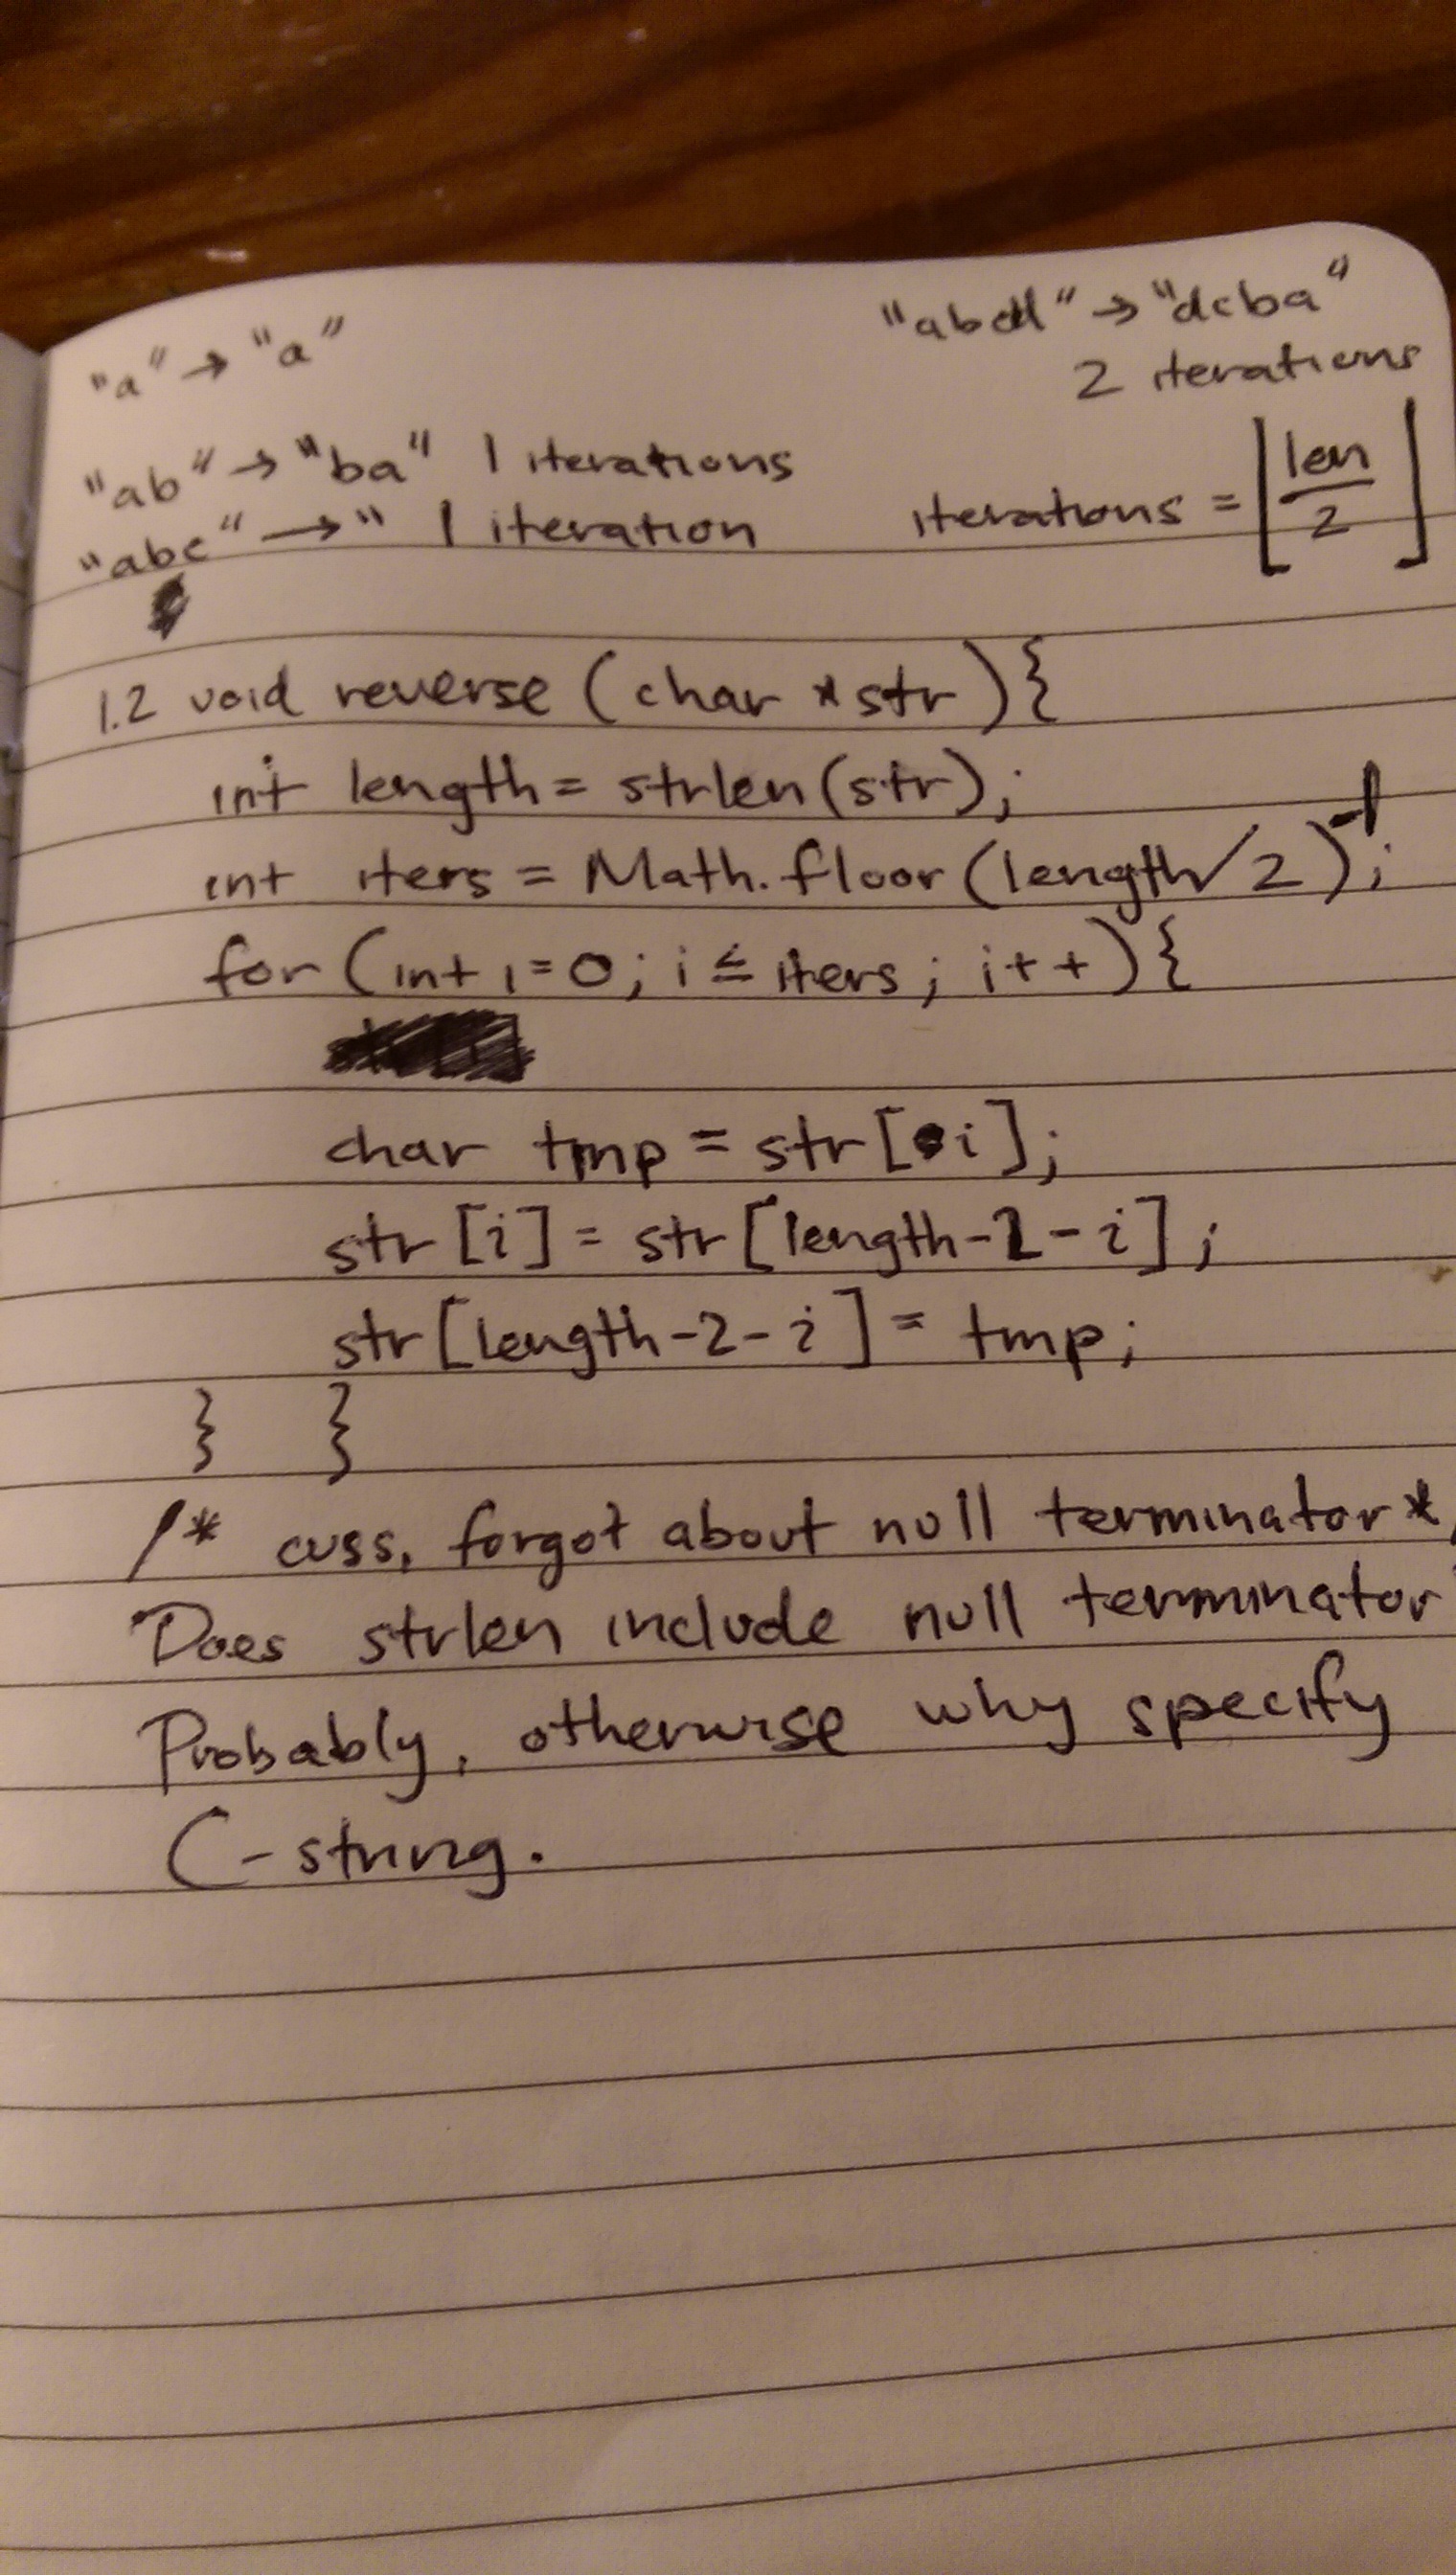 "a" → "a"
"abcd" → "dcba"
2 iterations
"ab" → "ba" 1 iterations
"abc" → " 1 iteration
iterations = ⌊len/2⌋
1.2 void reverse (char *str){
int length = strlen(str);
int iters = Math.floor(length/2)-1;
for (int i=0; i ≤ iters; i++){
char tmp = str[i];
str[i] = str[length-2-i];
str[length-2-i] = tmp;
} }
/* cuss, forgot about null terminator*/
Does strlen include null terminator?
Probably, otherwise why specify
C-string.